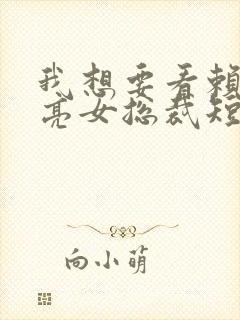 我想要看賴
亮女总裁短
向小萌